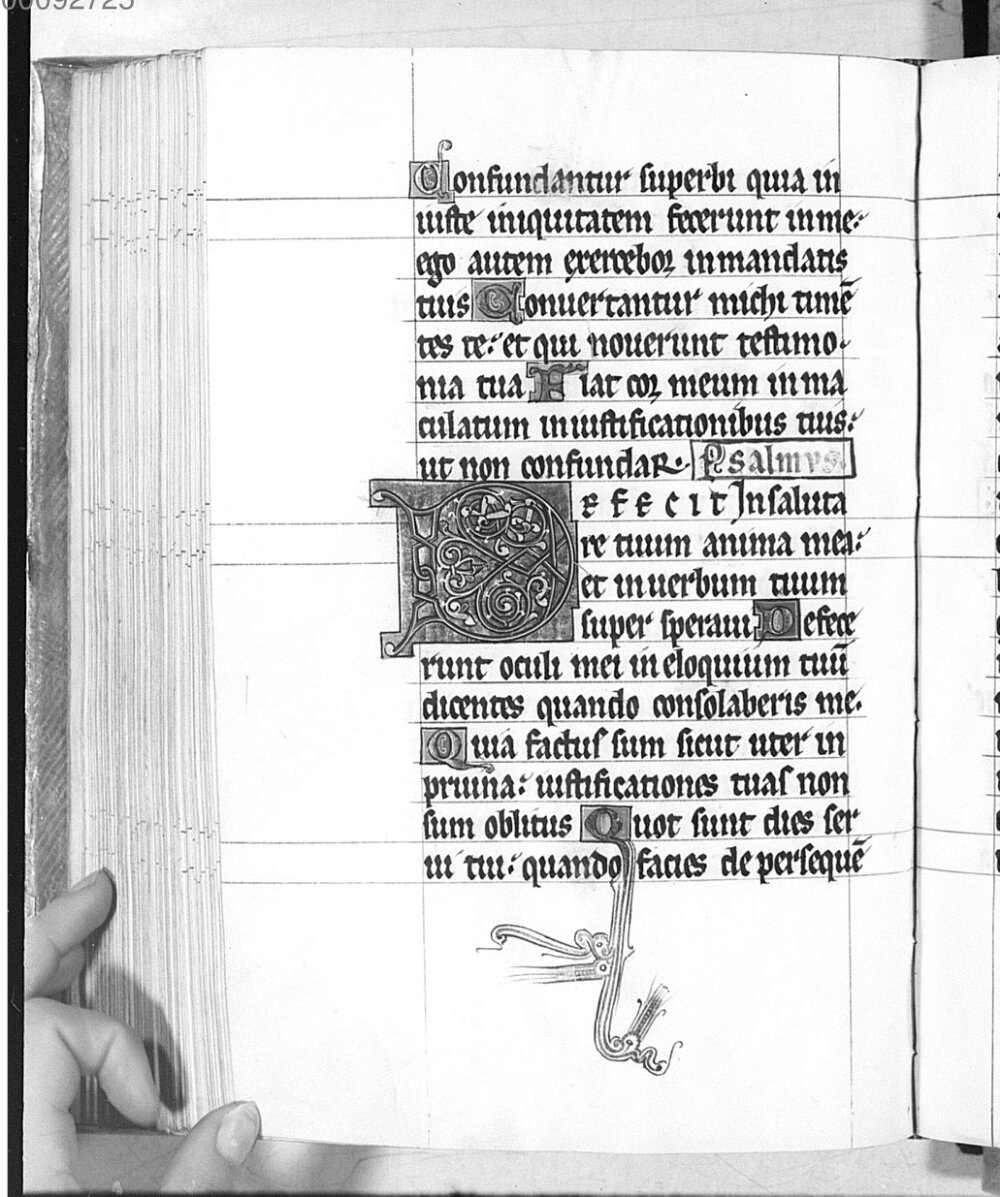 00092725
Confundantur superbi quia in
iuste iniquitatem fecerunt in me:
ego autem exercebor in mandatis
tuis Conuertantur michi timē
tes te: et qui nouerunt testimo-
nia tua Fiat cor meum in ma
culatum in iustificationibus tuis:
ut non confundar. Psalmvs.
DEFECIT In saluta
re tuum anima mea:
et in uerbum tuum
super speraui. Defece
runt oculi mei in eloquium tuū
dicentes quando consolaberis me.
Quia factus sum sicut uter in
pruina: iustificationes tuas non
sum oblitus Quot sunt dies ser
ui tui: quando facies de persequē